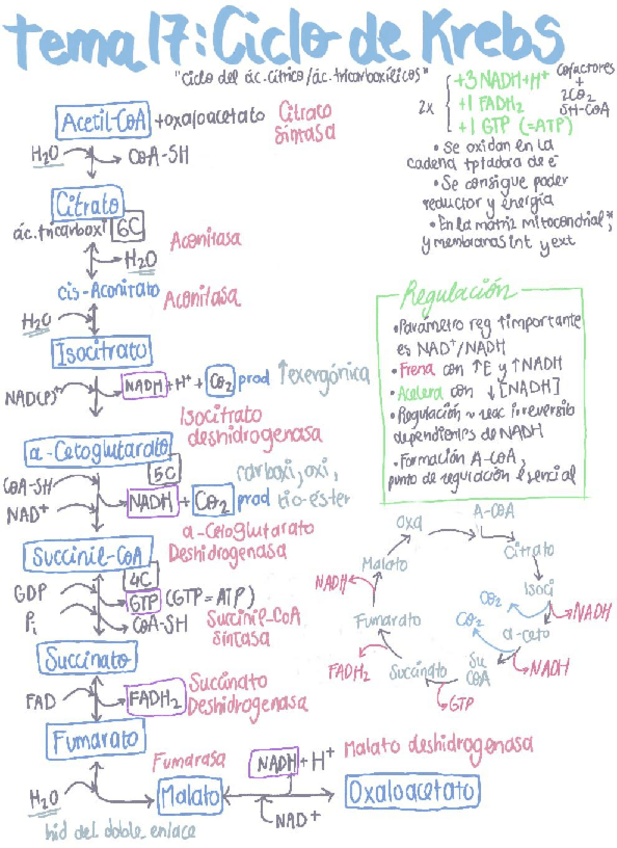 Tema 17: Ciclo de Krebs
"Ciclo del ác. Cítrico/ác. tricarboxílicos"
+3 NADH+H+
2x
+1 FADH2
+1 GTP (=ATP)
Cofactores
+
2CO2
SH-CoA
• Se oxidan en la
cadena tptadora de e-
• Se consigue poder
reductor y energía
• En la matriz mitocondrial*,
y membranas int y ext
Acetil-CoA + oxaloacetato
Citrato
sintasa
H2O
CoA-SH
Citrato
ác. tricarboxi
6C
Aconitasa
H2O
cis-Aconitato
Aconitasa
H2O
Isocitrato
NAD(P)+
NADH + H+ + CO2 prod
↑exergónica
Isocitrato
deshidrogenasa
α-Cetoglutarato
5C
CoA-SH
NAD+
NADH + CO2 prod
carboxi, oxi,
tio-éster
α-Cetoglutarato
Deshidrogenasa
Succinil-CoA
4C
GDP
Pi
GTP (GTP = ATP)
CoA-SH
Succinil-CoA
sintasa
Succinato
FAD
FADH2
Succinato
Deshidrogenasa
Fumarato
Fumarasa
H2O
hid del doble enlace
Malato
NADH + H+
NAD+
Malato deshidrogenasa
Oxaloacetato
Regulación
• Parámetro reg ↑importante
es NAD+/NADH
• Frena con ↑E y ↑NADH
• Acelera con ↓[NADH]
• Regulación ~ reac irreversib
dependientes de NADH
• Formación A-CoA,
punto de regulación esencial
A-CoA
Oxa
Citrato
Malato
Isoci
NADH
CO2
NADH
CO2
Fumarato
α-ceto
FADH2
Succinato
Su
CoA
NADH
GTP